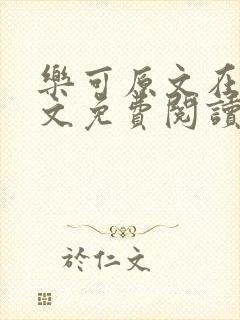 樂可原文在
文免費閱讀
於仁文